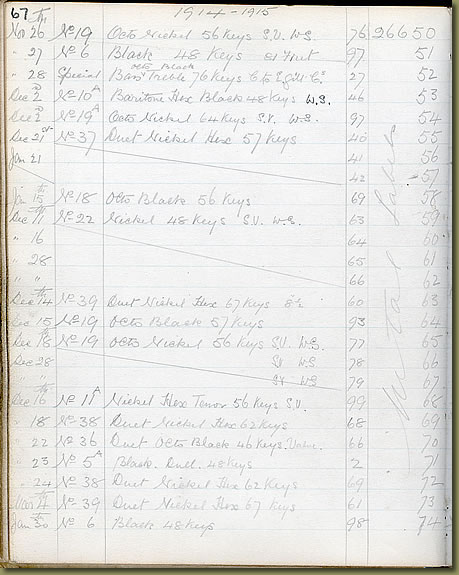 67 1914-1915
Nov 26th No 19 Octo Nickel 56 Keys S.V. W.S. 76 26650
" 27 No 6 Black 48 Keys 97 51
" 28 Special Bari Treble 76 Keys 27 52
Octo Black
Dec 2nd No 10A Baritone Hex Black 48 Keys W.S. 46 53
Dec 2nd No 19A Octo Nickel 64 Keys S.V. W.S. 97 54
Dec 21st No 37 Duet Nickel Hex 57 Keys 40 55
Jan 21 41 56
42 57
Jan 15th No 18 Octo Black 56 Keys 69 58
Dec 11th No 22 Nickel 48 Keys S.V. W.S. 63 59
" 16 64 60
" 28 65 61
66 62
Dec 14th No 39 Duet Nickel Hex 67 Keys 8½ 60 63
Dec 15 No 19 Octo Black 57 Keys 93 64
Dec 18th No 19 Octo Nickel 56 Keys S.V. W.S. 77 65
Dec 28 SV W.S 78 66
SV W.S 79 67
Dec 16th No 11A Nickel Hex Tenor 56 Keys S.V. 99 68
" 18 No 38 Duet Nickel Hex 62 Keys 68 69
" 22 No 36 Duet Octo Black 46 Keys 66 70
" 23 No 5A Black. Dull. 48 Keys 2 71
" 24 No 38 Duet Nickel Hex 62 Keys 69 72
No 39 Duet Nickel Hex 67 Keys 61 73
Jan 30 No 6 Black 48 Keys 98 74
Metal Labels